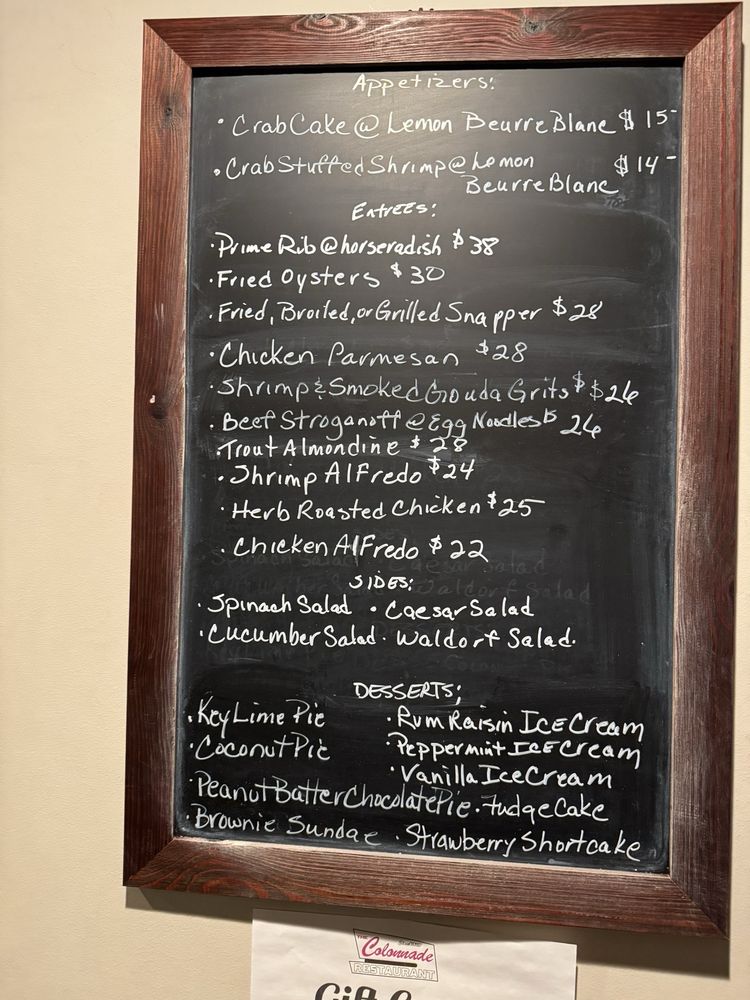 Appetizers:
• Crab Cake @ Lemon Beurre Blanc $ 15-
• Crab Stuffed Shrimp @ Lemon $ 14-
Beurre Blanc
Entrees:
• Prime Rib @ horseradish $ 38
• Fried Oysters $ 30
• Fried, Broiled, or Grilled Snapper $ 28
• Chicken Parmesan $ 28
• Shrimp & Smoked Gouda Grits $ $ 26
• Beef Stroganoff @ Egg Noodles $ 26
• Trout Almondine $ 28
• Shrimp Alfredo $ 24
• Herb Roasted Chicken $ 25
• Chicken Alfredo $ 22
SIDES:
• Spinach Salad • Caesar Salad
• Cucumber Salad • Waldorf Salad.
DESSERTS;
• Key Lime Pie • Rum Raisin Ice Cream
• Coconut Pie • Peppermint Ice Cream
• Vanilla Ice Cream
• Peanut Batter Chocolate Pie • Fudge Cake
• Brownie Sundae • Strawberry Shortcake
THE Colonnade
RESTAURANT